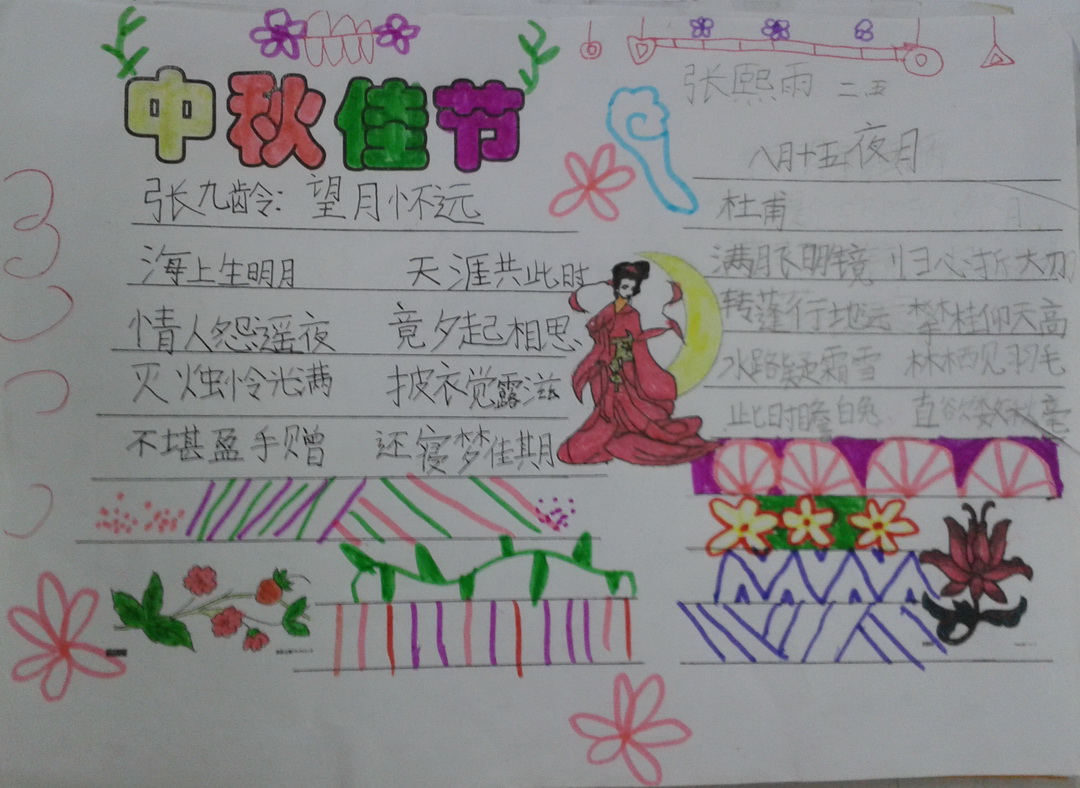 中秋佳节
张九龄：望月怀远
海上生明月 天涯共此时
情人怨遥夜 竟夕起相思
灭烛怜光满 披衣觉露滋
不堪盈手赠 还寝梦佳期
张熙雨 二五
八月十五夜月
杜甫
满月飞明镜 归心折大刀
转蓬行地远 攀桂仰天高
水路疑霜雪 林栖见羽毛
此时瞻白兔 直欲数秋毫